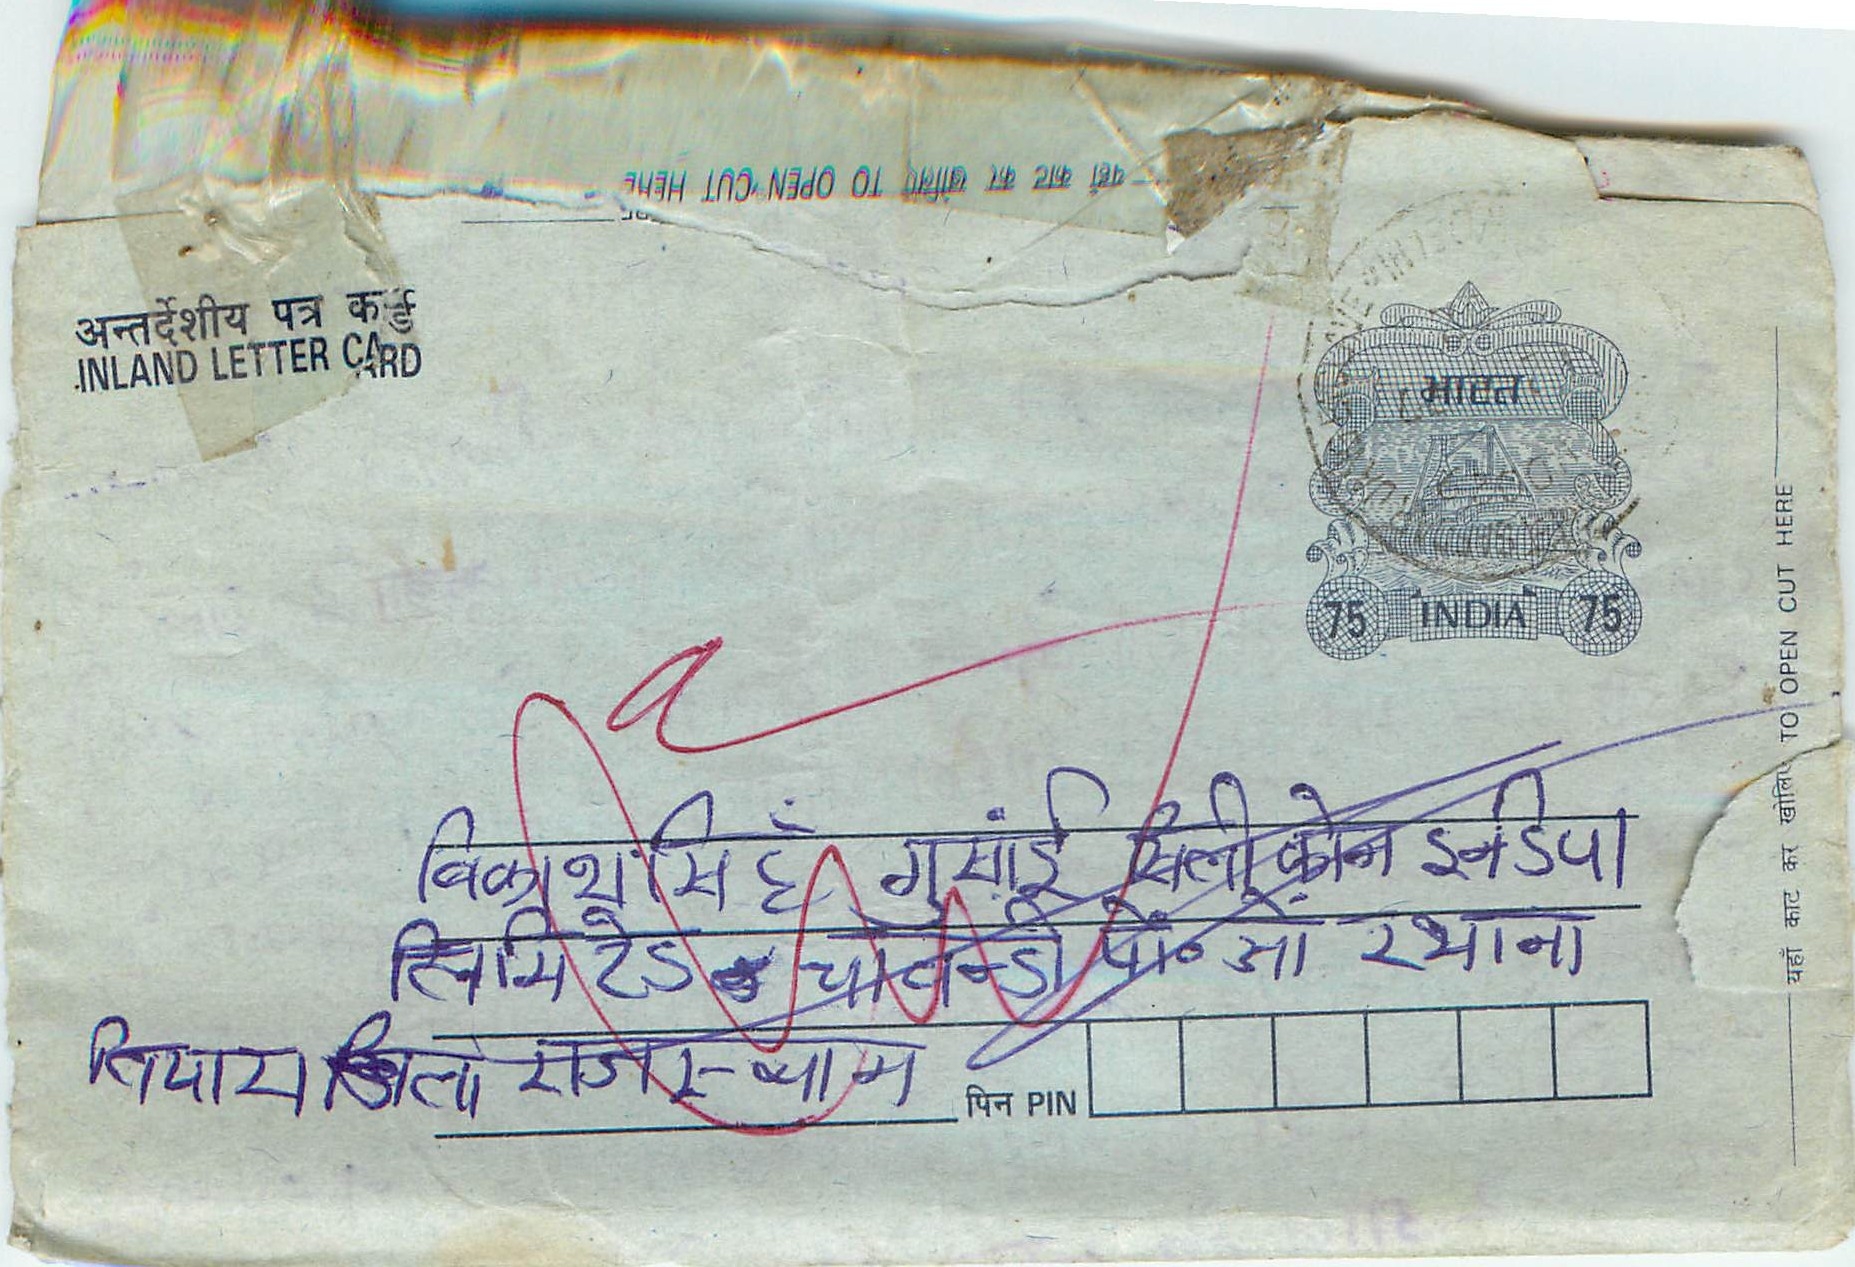 यहाँ काट कर खोलिए TO OPEN CUT HERE
अन्तर्देशीय पत्र कार्ड
INLAND LETTER CARD
भारत
75 INDIA 75
विकाश सिहं गुसांई सिलीकोन इनडिया
लिमिटेड चोवन्डी पो॰ ओ रथाना
तियारा जिला राजस्थान
पिन PIN
यहाँ काट कर खोलिए TO OPEN CUT HERE